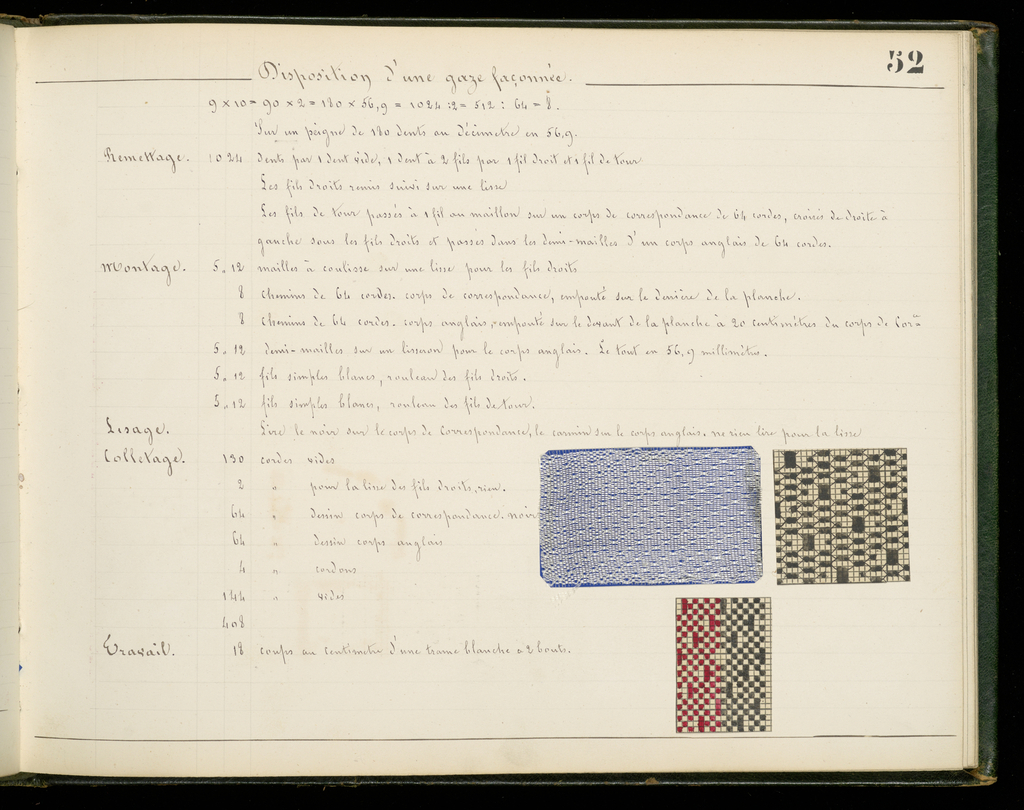 52
Disposition d'une gaze façonnée.
9 x 10 = 90 x 2 = 180 x 56,9 = 1024 : 2 = 512 : 64 = 8.
Sur un peigne de 180 dents au décimètre en 56,9.
Remettage. 1024 dents par 1 dent vide, 1 dent à 2 fils par 1 fil droit et 1 fil de tour
Les fils droits remis suivi sur une lisse
Les fils de tour passés à 1 fil au maillon sur un corps de correspondance de 64 cordes, croisés de droite à
gauche sous les fils droits et passés dans les demi-mailles d'un corps anglais de 64 cordes.
Montage. 5.12 mailles à coulisse sur une lisse pour les fils droits
8 chemins de 64 cordes. corps de correspondance, empouté sur le derrière de la planche.
8 chemins de 64 cordes. corps anglais, empouté sur le devant de la planche à 20 centimètres du corps de Cor
5.12 demi-mailles sur un lisseron pour le corps anglais. Le tout en 56,9 millimètres.
5.12 fils simples blancs, rouleau des fils droits.
5.12 fils simples blancs, rouleau des fils de tour.
Lisage. Lire le noir sur le corps de correspondance, le carmin sur le corps anglais. ne rien lire pour la lisse
Colletage. 130 cordes vides
2 " pour la lisse des fils droits, rien.
64 " dessin corps de correspondance. noir
64 " dessin corps anglais
4 " cordons
144 " vides
408
Travail. 18 coups au centimètre d'une trame blanche à 2 bouts.